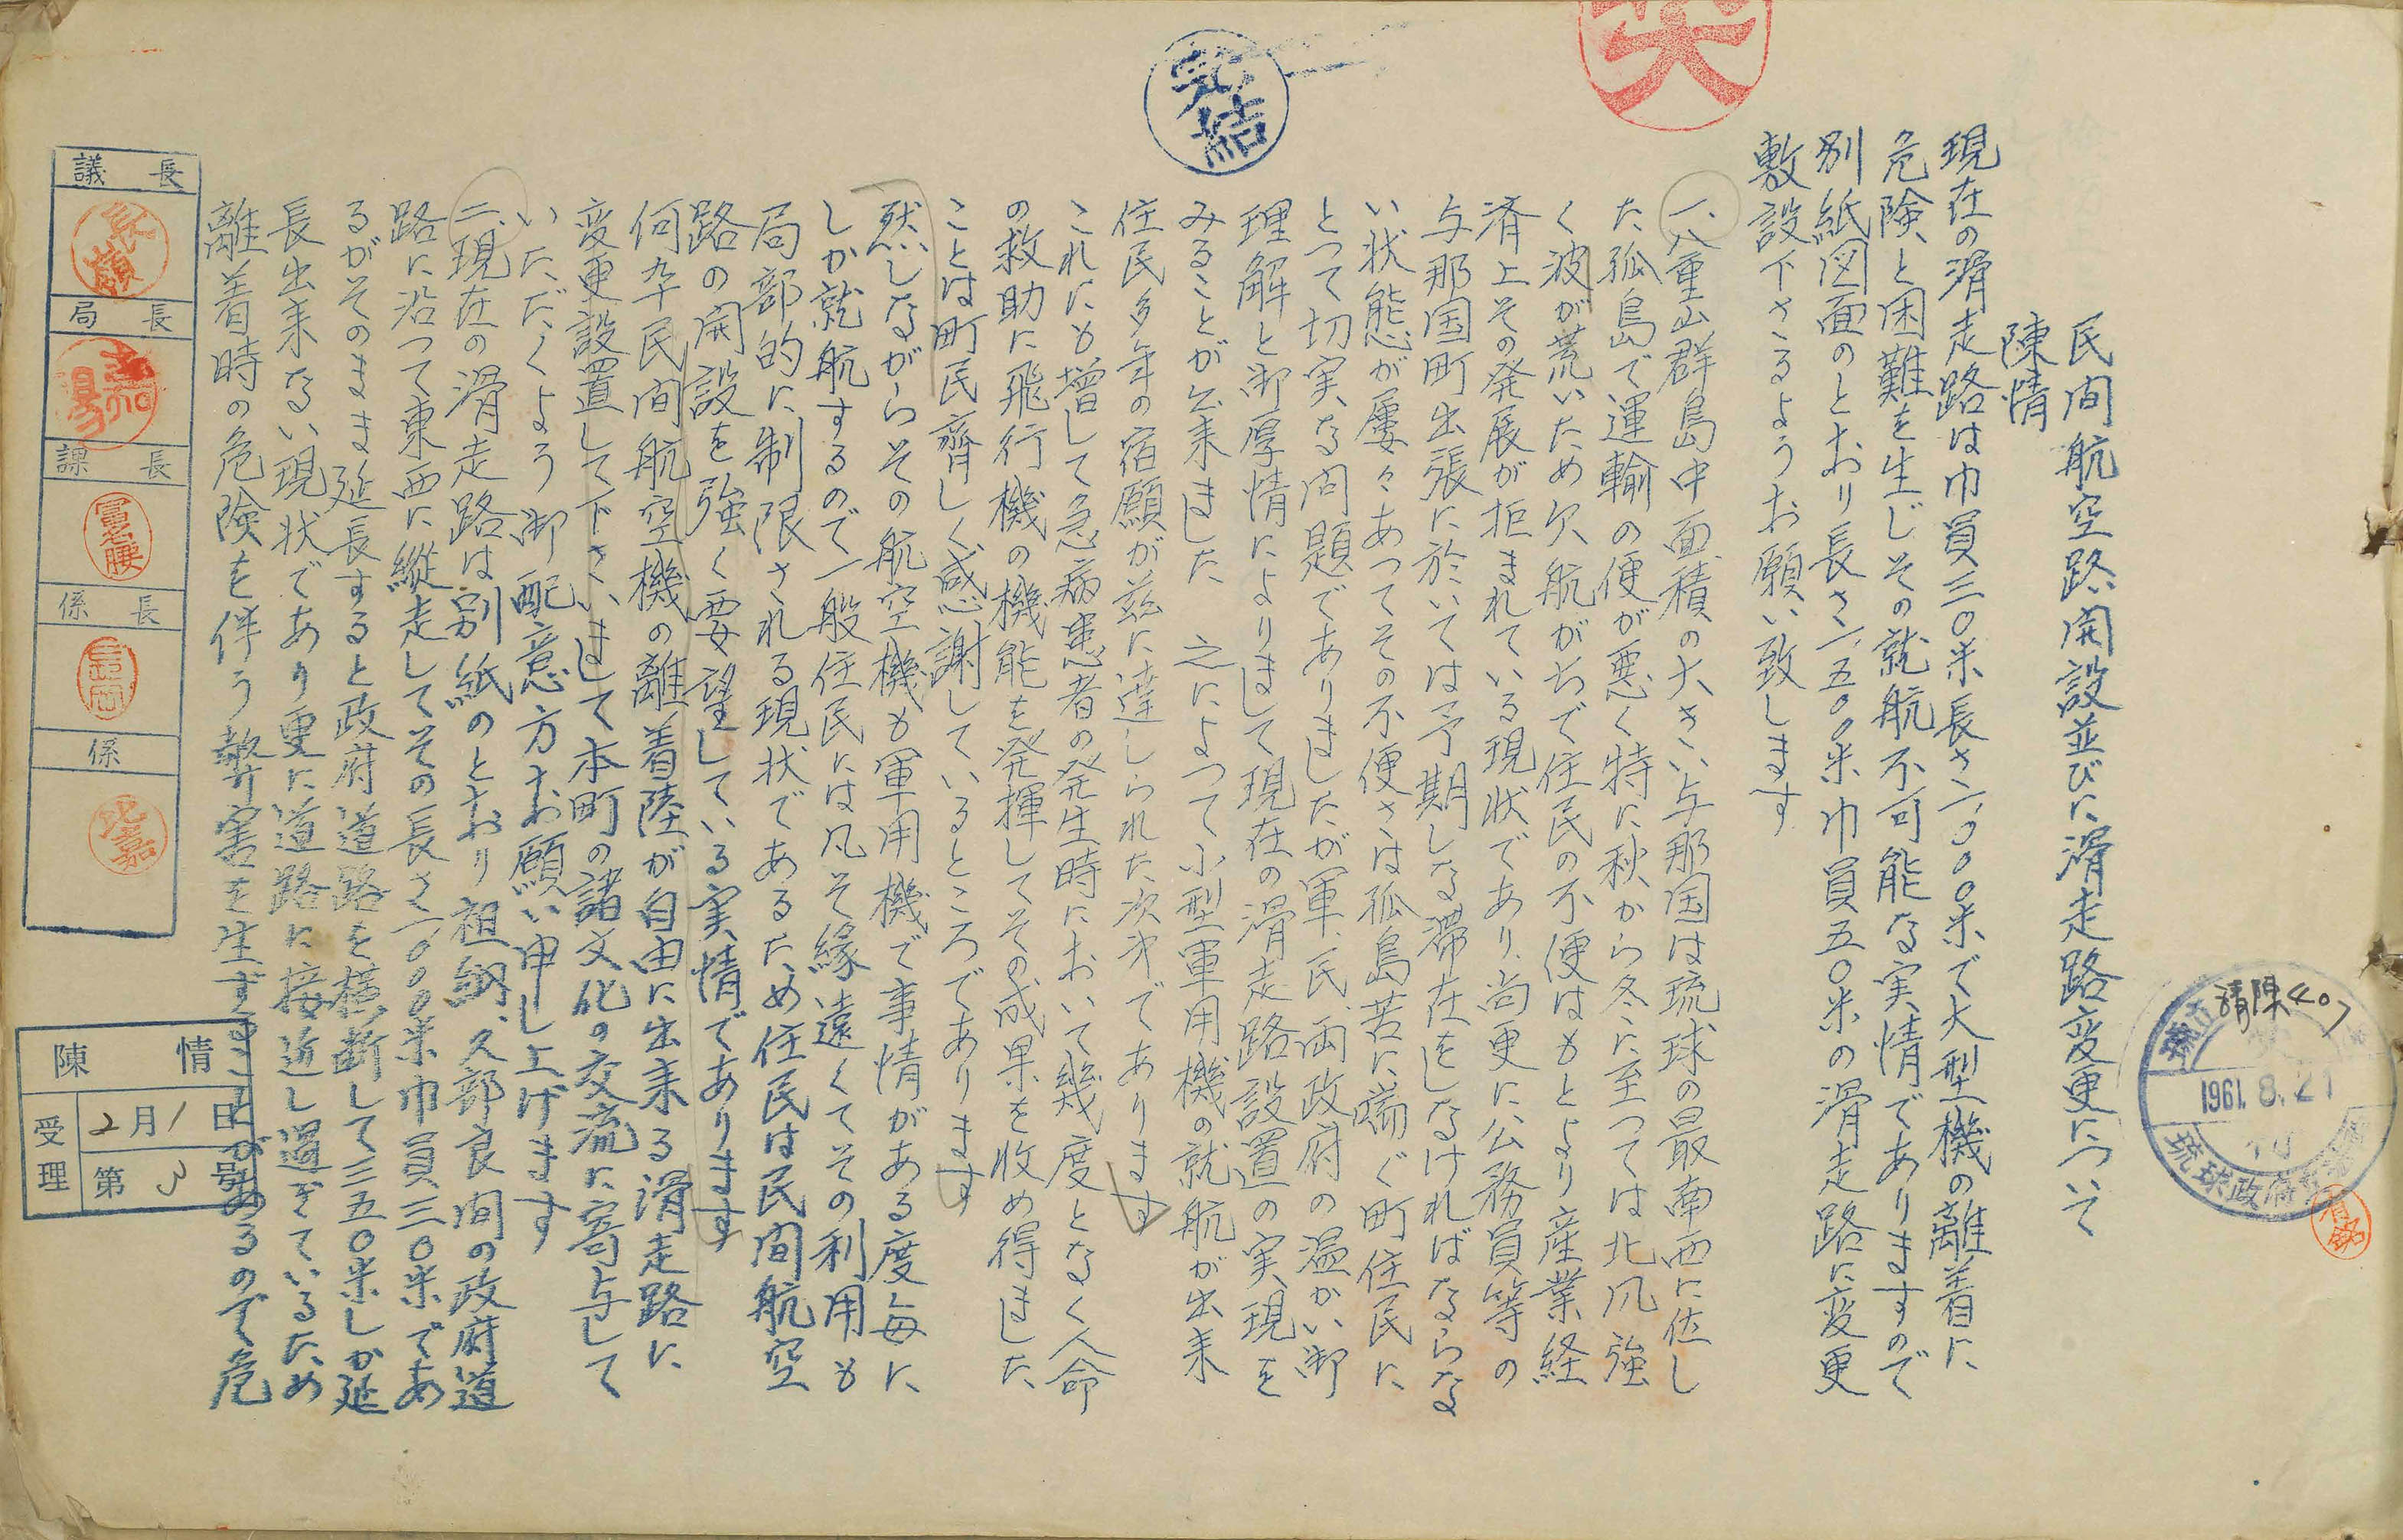 民間航空路開設並びに滑走路変更について
陳情
現在の滑走路は巾員三〇米長さ一、〇〇〇米で大型機の離着に
危険と困難を生じその就航不可能な実情でありますので
別紙図面のとおり長さ一、五〇〇米巾員五〇米の滑走路に変更
敷設下さるようお願い致します
一、八重山群島中面積の大きい与那国は琉球の最南西に位し
た孤島で運輸の便が悪く特に秋から冬に至つては北風強
く波が荒いため欠航がちで住民の不便はもとより産業経
済上その発展が拒まれている現状であり、尚更に公務員等の
与那国町出張に於いては予期しな滞在をしなければならな
い状態が屢々あつてその不便さは孤島苦に喘ぐ町住民に
とつて切実なる問題でありましたが軍、民、両政府の温かい御
理解と御厚情によりまして現在の滑走路設置の実現を
みることが公来ました 之によつて小型軍用機の就航が出来
住民多年の宿願が茲に達しられた次才であります
これにも増して急病患者の発生時において幾度となく人命
の救助に飛行機の機能を発揮してその成果を收め得ました
ことは町民齊しく感謝しているところであります
然しながらその航空機も軍用機で事情がある度毎に
しか就航するので一般住民には凡そ縁遠くてその利用も
局部的に制限される現状であるため住民は民間航空
路の開設を強く要望している実情であります
何卒民間航空機の離着陸が自由に出来る滑走路に
変更設置して下さいまして本町の諸文化の交流に寄与して
いただくよう御配意方お願い申し上げます
二、現在の滑走路は別紙のとおり祖納、久部良間の政府道
路に沿つて東西に縦走してその長さ一、〇〇〇米巾員三〇米であ
るがそのまま延長すると政府道路を横断して三五〇米しか延
長出来ない現状であり更に道路に接近し過ぎているため
離着時の危険を伴う弊害を生ずることがあるので危
完結
議長
局長
課長
冨名腰
係長
長岡
係
比嘉
陳情
受理
2月1日
第3号
請陳407
1961.8.21
琉球政府